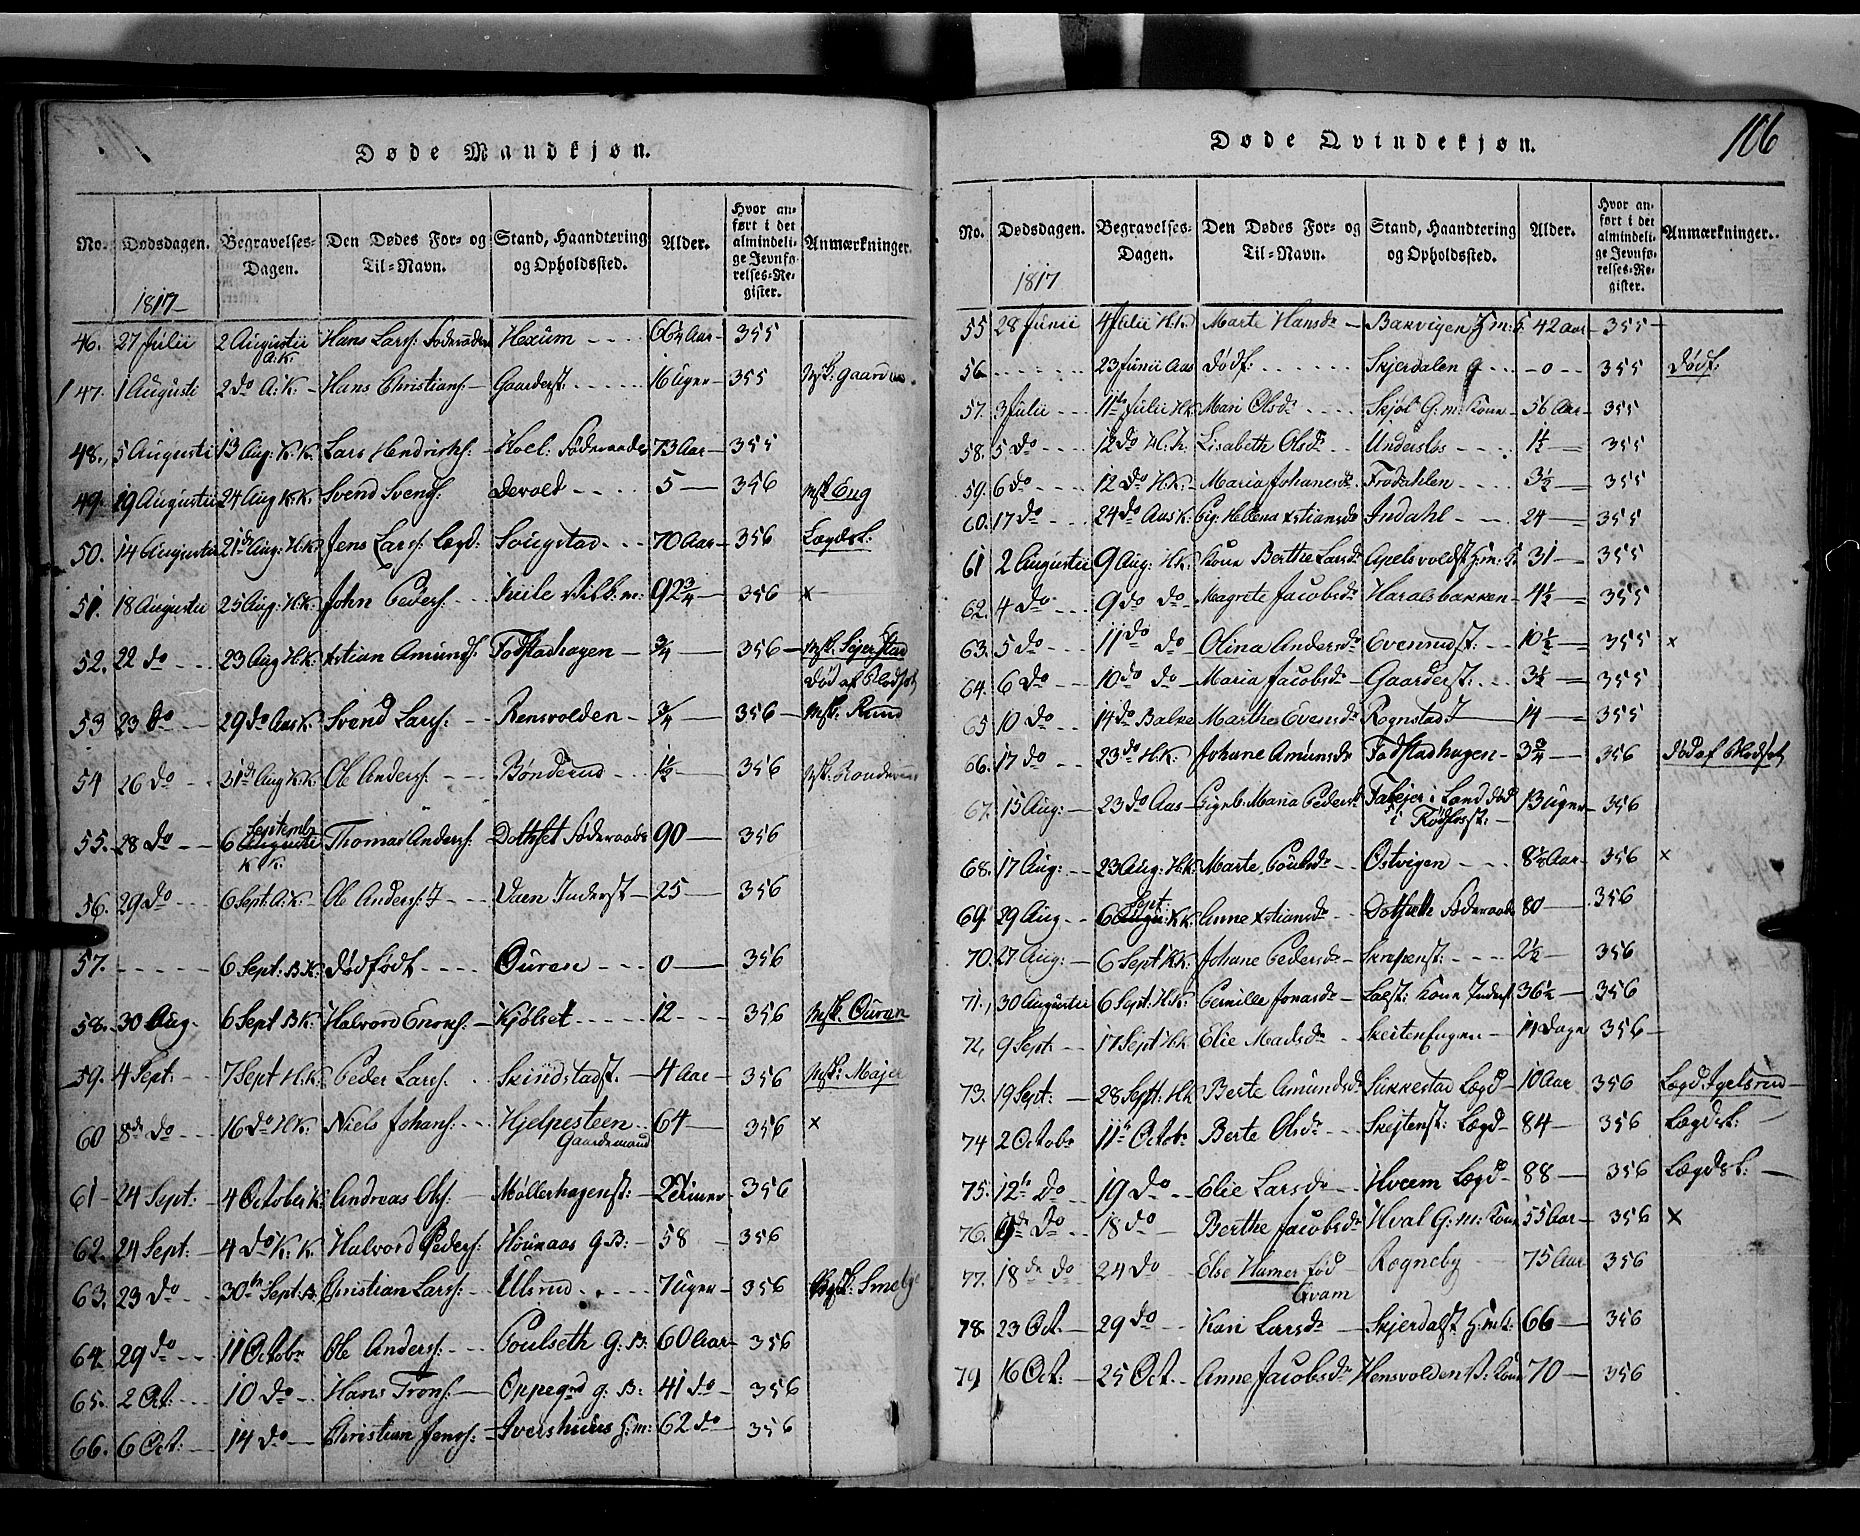 Døde Mandkjøn.
No. Dødsdagen. Begravelses-Dagen. Den Dødes For- og Til-Navn. Stand, Haandtering og Opholdssted. Alder. Hvor anført i det almindelige Jevnførelses-Register. Anmærkninger.
1817
46. 27 Julii 2 Augustii A:K. Hans Larss: Hexum Aar 355
47. 1 Augusti 2 do A:K. Hans Christians: Gaarderst: 16 Uger 355
48. 5 Augusti 13 Aug: K.K. Lars Hendrichs: Hoel: Føderaads 73 Aar 355
49. 19 Augustii 24 Aug K.K. Svend Svends: Devold 5 356 Eng
50. 14 Augustii 21de Aug: H.K. Jens Larss: Lægd: Sougstad 70 Aar 356 Lægdsl:
51. 18 Augustii 25 Aug: H.K. John Peders: 92 3/4 356 x
52. 22 do 23 Aug H.K. xstian Amunds: Fodstadhagen 3/4 356 Sejerstad
Død af Blodsot
53 23 do 29 do Aas K. Svend Larss: Rensvolden 3/4 356
54 26 do 31de Aug K.K. Ole Anders: Bønderud 1 1/2 356
55. 28 do 6 Septembr K.K. Thomas Anders: Føderaads 90 356
56. 29 do 6 Sept: A:K. Ole Anders: Inderst 25 356
57. 6 Sept: B.K. Dødfødt Ouren 0 356
58. 30 Aug 6 Sept B.K: Halvord Kjølset 12 356 Ouren
59. 4 Sept: 7 Sept H.K. Peder Larss: Skindstadst: 4 Aar 356 Majer
60 8de do 16 do H.K: Niels Johans: Hjelpesteen Gaardemand 64 356 x
61 24 Sept: 4 October K Andreas Ols: Møllerhagenst: 356
62. 24 Sept: 4 do K.K. Halvord Peders: Hounaas G.B: 58 356
63. 23 do 30te Sept: B. Christian Larss: Ulsrud 7 Uger 356
64 29 do 11 Octobr Ole Anders: Poulseth G:B: 60 Aar 356
65. 2 Oct: 10 do Hans Trons: Oppegrd G:B: 41 do 356
66. 6 Oct: 14 do Christian Jens: Ivershuus 62 do 356
106
Døde Qvindekjøn.
No. Dødsdagen. Begravelses-Dagen. Den Dødes For- og Til-Navn. Stand, Haandtering og Opholdssted. Alder. Hvor anført i det almindelige Jevnførelses-Register. Anmærkninger.
1817
55 28 Junii 4 Julii H.K. Marte Hansdr 42 Aar 355
56 23 Junii Aas Dødf: Skjerdalen G 0 355 Dødf:
57. 3 Julii 11te Julii H.K. Mari Olsdr Skjøl G:m: Kone 56 Aar 355
58. 5 do 12 do H.K. Lisabeth Olsdr Underslos 1 1/2 355
59. 6 do 12 do H.K. Maria Johansdr Frodahlen 3 1/2 355
60. 17 do 24 do Aas K: Pig: Hellena xstiansdr Indahl 24 355
61 2 Augustii 9 Aug: H.K. Kone Berthe Larsdr Apelsvoldst 31 355
62. 4 do 9 do do Magrete Jacobsdr Haralsbakken 4 1/2 355
63. 5 do 11 do do Olina Andersdr Evenrudst: 10 1/2 355 x
64. 6 do 10 do do Maria Jacobsdr Gaarderst: 3 1/2 355
65 10 do 14 do Balke Marthe Evensdr Rognstad 14 355
66. 17 do 23 do H.K. Johane Amunsdr Fodstadhagen 3 3/4 356 Død af Blodsot
67. 15 Aug: 23 do Aas Pigeb: Maria Pedersdr i Land død i 13 Uger 356
68. 17 Aug: 23 Aug: H.K. Marte Poulsdr Østvigen 8 1/2 Aar 356 x
69 29 Aug 6 Sept: K.K. Anne xstiansdr Føderaads 80 356
70. 27 Aug: 6 Sept K.K: Johane Pedersdr Skrepenst: 2 1/2 356
71. 30 Augustii 6 Sept: H.K. Pernille Jonasdr Kone Inderst 36 1/2 356
72. 9 Sept: 17 Sept H.K. Elie Madsdr 14 Dage 356
73. 19 Sept: 28 Sept: H.K. Berte Amundsdr Sukkestad Lægd 10 Aar 356 Lægd
74 2 Octobr 11te Octobr Berte Olsdr Skejtenst: Lægd 84 356 Lægdsl:
75. 12te do 19 do Elie Larsdr Hveem Lægd 88 356 Lægdsl:
76. 9de do 18 do Berthe Jacobsdr Hval G:m: Kone 55 Aar 356 x
77. 18de do 24 do Else Hamer fød Qvam Rogneby 75 Aar 356
78. 23 Oct: 29 do Kari Larsdr Skjerdalst 66 356
79 16 Oct: 25 Oct. Anne Jacobsdr Hensvolden Kone 70 356